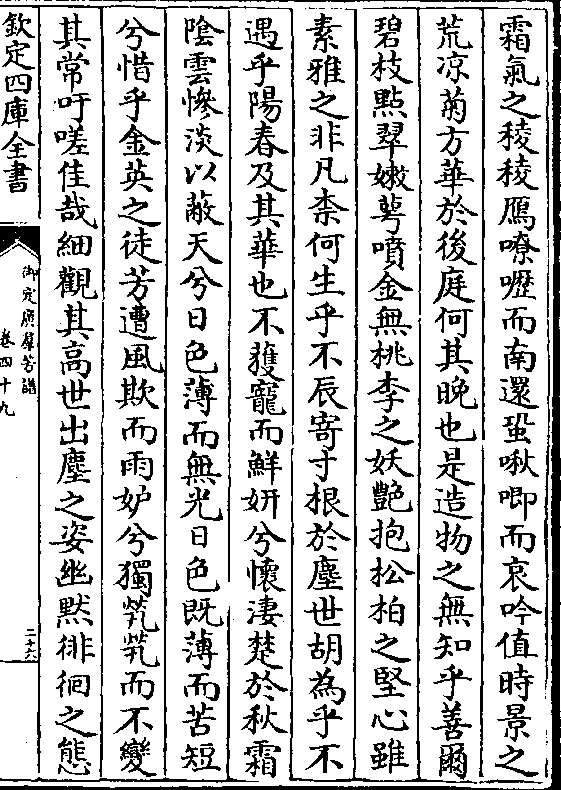 霜氣之稜稜鴈嘹嚦而南還蛩啾唧而哀吟值時景之
荒凉菊方華於後庭何其晚也是造物之無知乎善爾
碧枝點翠嫩萼噴金無桃李之妖艷抱松柏之堅心雖
素雅之非凡柰何生乎不辰寄寸根於塵世胡為乎不
遇乎陽春及其華也不獲寵而鮮妍兮懷淒楚於秋霜
陰雲慘淡以蔽天兮日色薄而無光日色既薄而苦短
兮惜乎金英之徒芳遭風欺而雨妒兮獨煢煢而不變
其常吁嗟佳哉細觀其高世出塵之姿幽默徘徊之態
欽定四庫全書
御定廣羣芳譜
卷四十九
二六